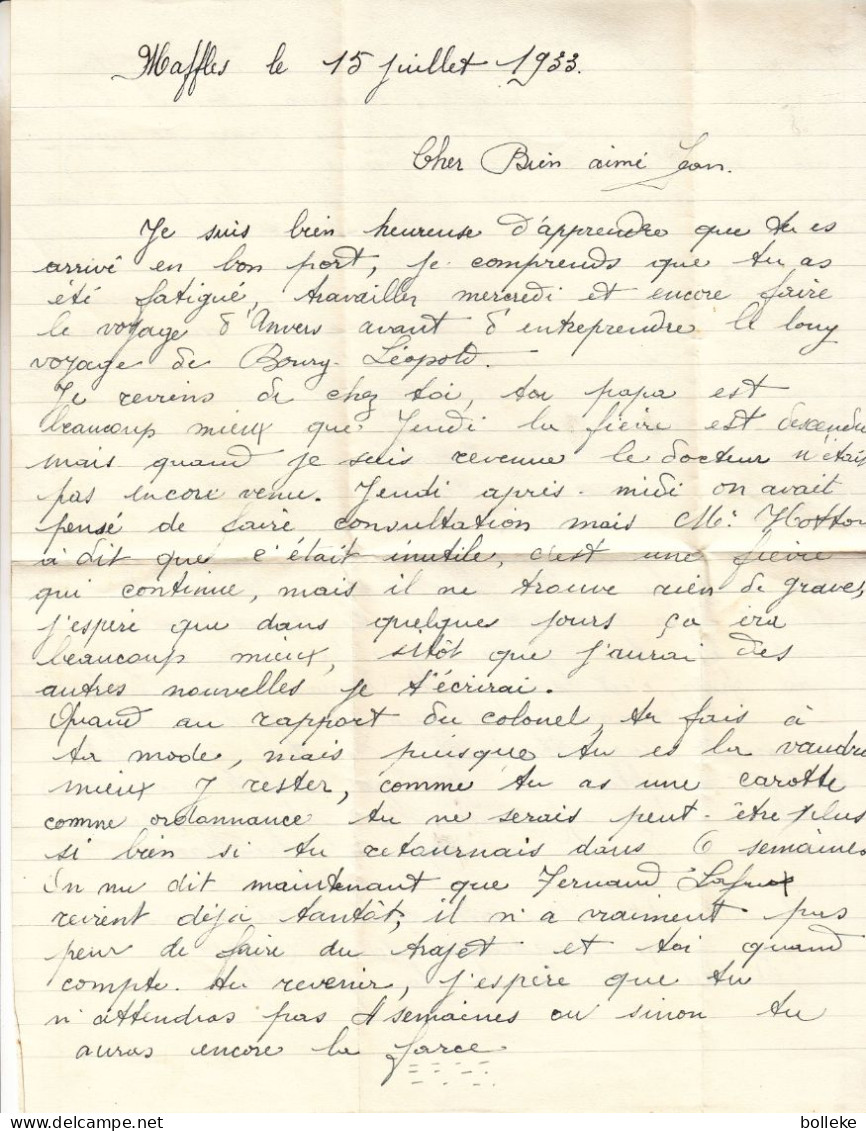 Maffles le 15 juillet 1933.
Cher Bien aimé Jean.
Je suis bien heureuse d'apprendre que tu es
arrivé en bon port, je comprends que tu as
été fatigué, travailler mercredi et encore faire
le voyage d'Anvers avant d'entreprendre le long
voyage de Bourg-Léopold.
Je reviens de chez toi, ton papa est
beaucoup mieux que Jeudi la fièvre est descendu
mais quand je suis revenue le docteur n'était
pas encore venu. Jeudi après-midi on avait
pensé de faire consultation mais Mr. Hotton
à dit que c'était inutile, c'est une fièvre
qui continue, mais il ne trouve rien de graves,
j'espère que dans quelques jours ça ira
beaucoup mieux, sitôt que j'aurai des
autres nouvelles je t'écrirai.
Quand au rapport du colonel, tu fais à
ta mode, mais puisque tu es la vaudra
mieux y rester, comme tu as une carotte
comme ordonnance tu ne serais peut-être plus
si bien si tu retournais dans 6 semaines
On me dit maintenant que Fernand
revient déjà tantôt, il n'a vraiment pas
peur de faire du trajet et toi quand
compte-tu revenir, j'espère que tu
n'attendras pas 4 semaines ou sinon tu
auras encore la farce
bolleke